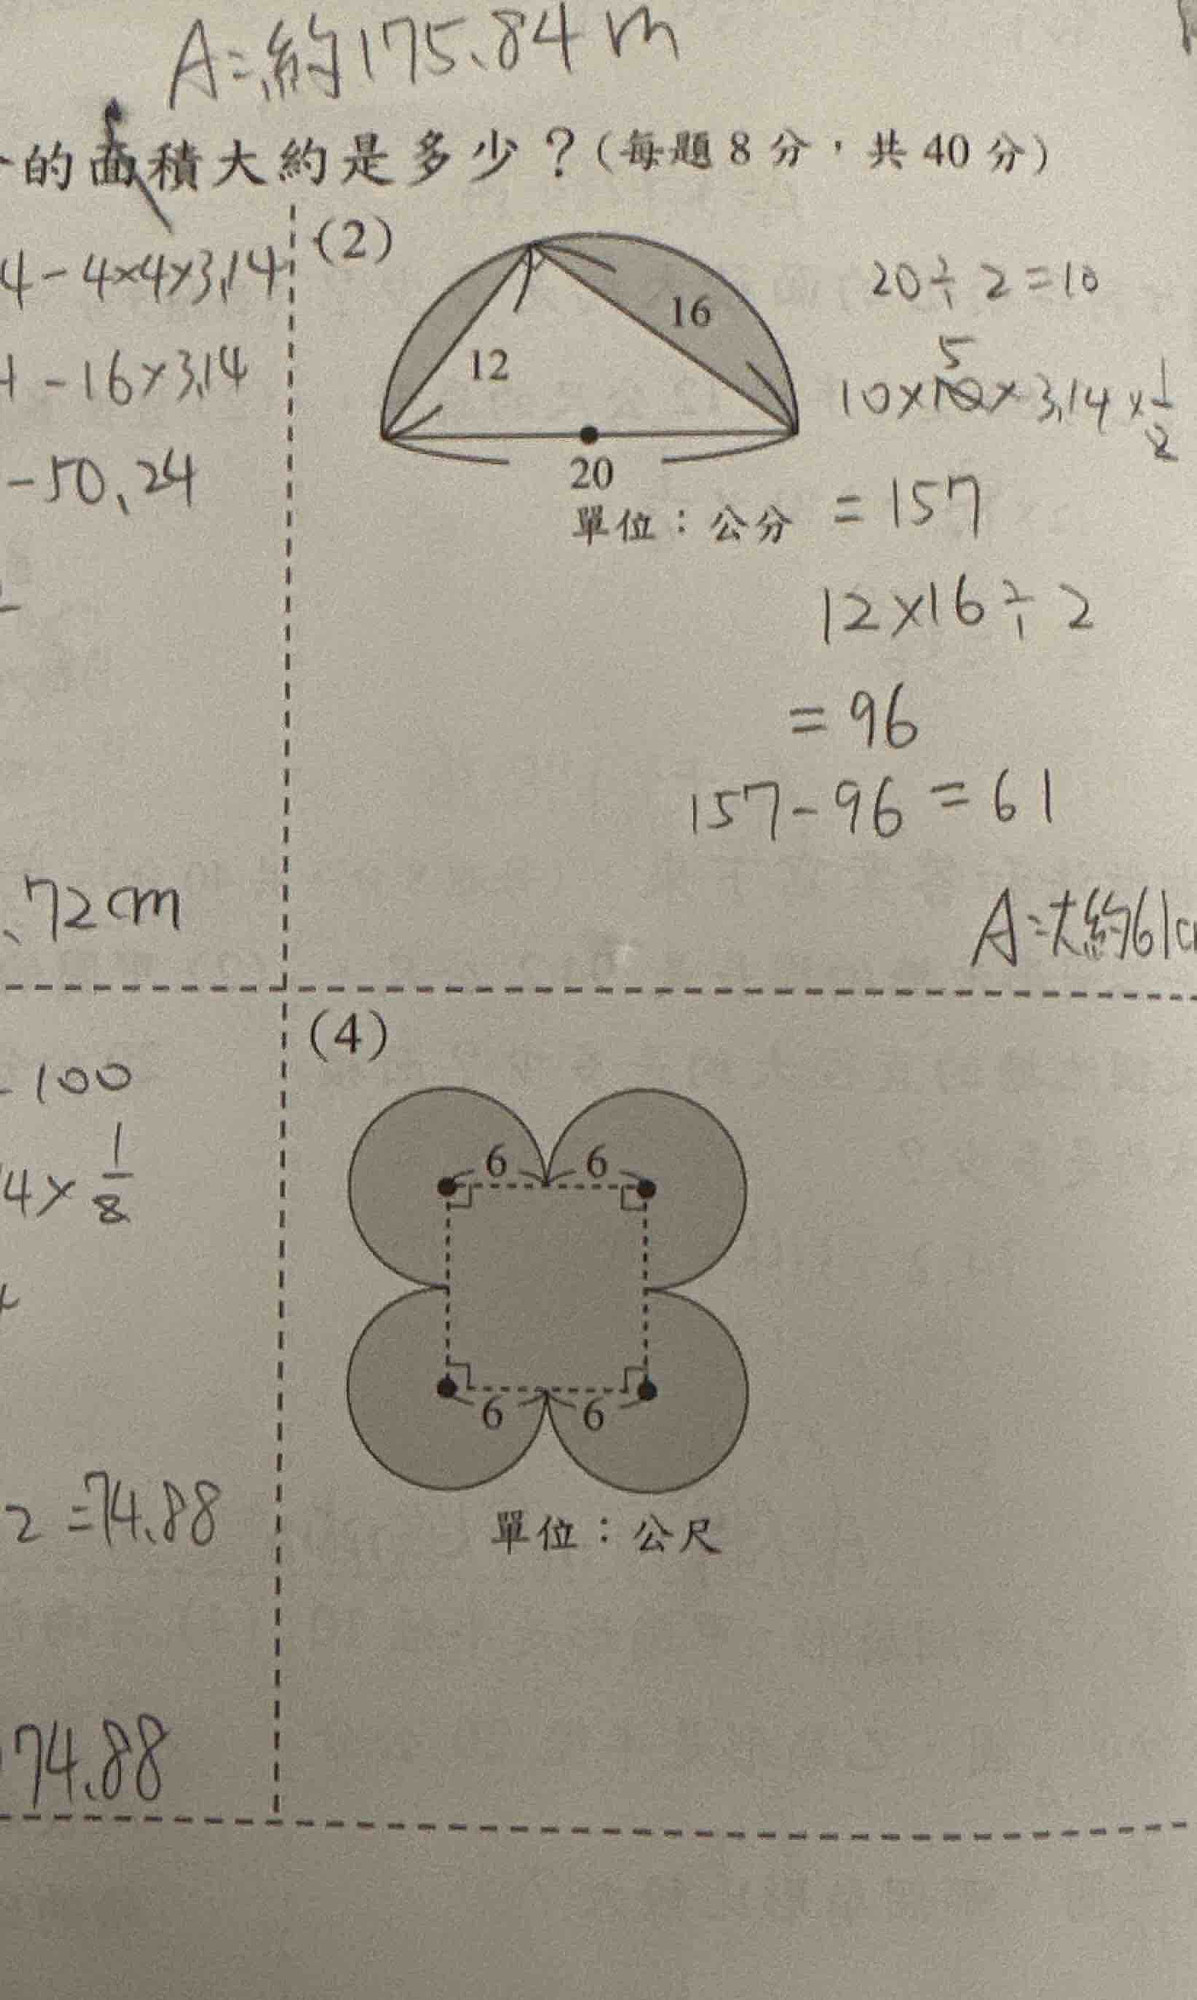 A:約175.84m
的面積大約是多少？(每題8分，共40分)
4-4×4×3.14
-16×3.14
-50.24
.72cm
(2)
12
16
20
單位：公分
20÷2=10
5
10×10×3.14×1/2
=157
12×16÷2
=96
157-96=61
A:大約61c
100
4×1/8
2=74.88
74.88
(4)
6 6
6 6
單位：公尺